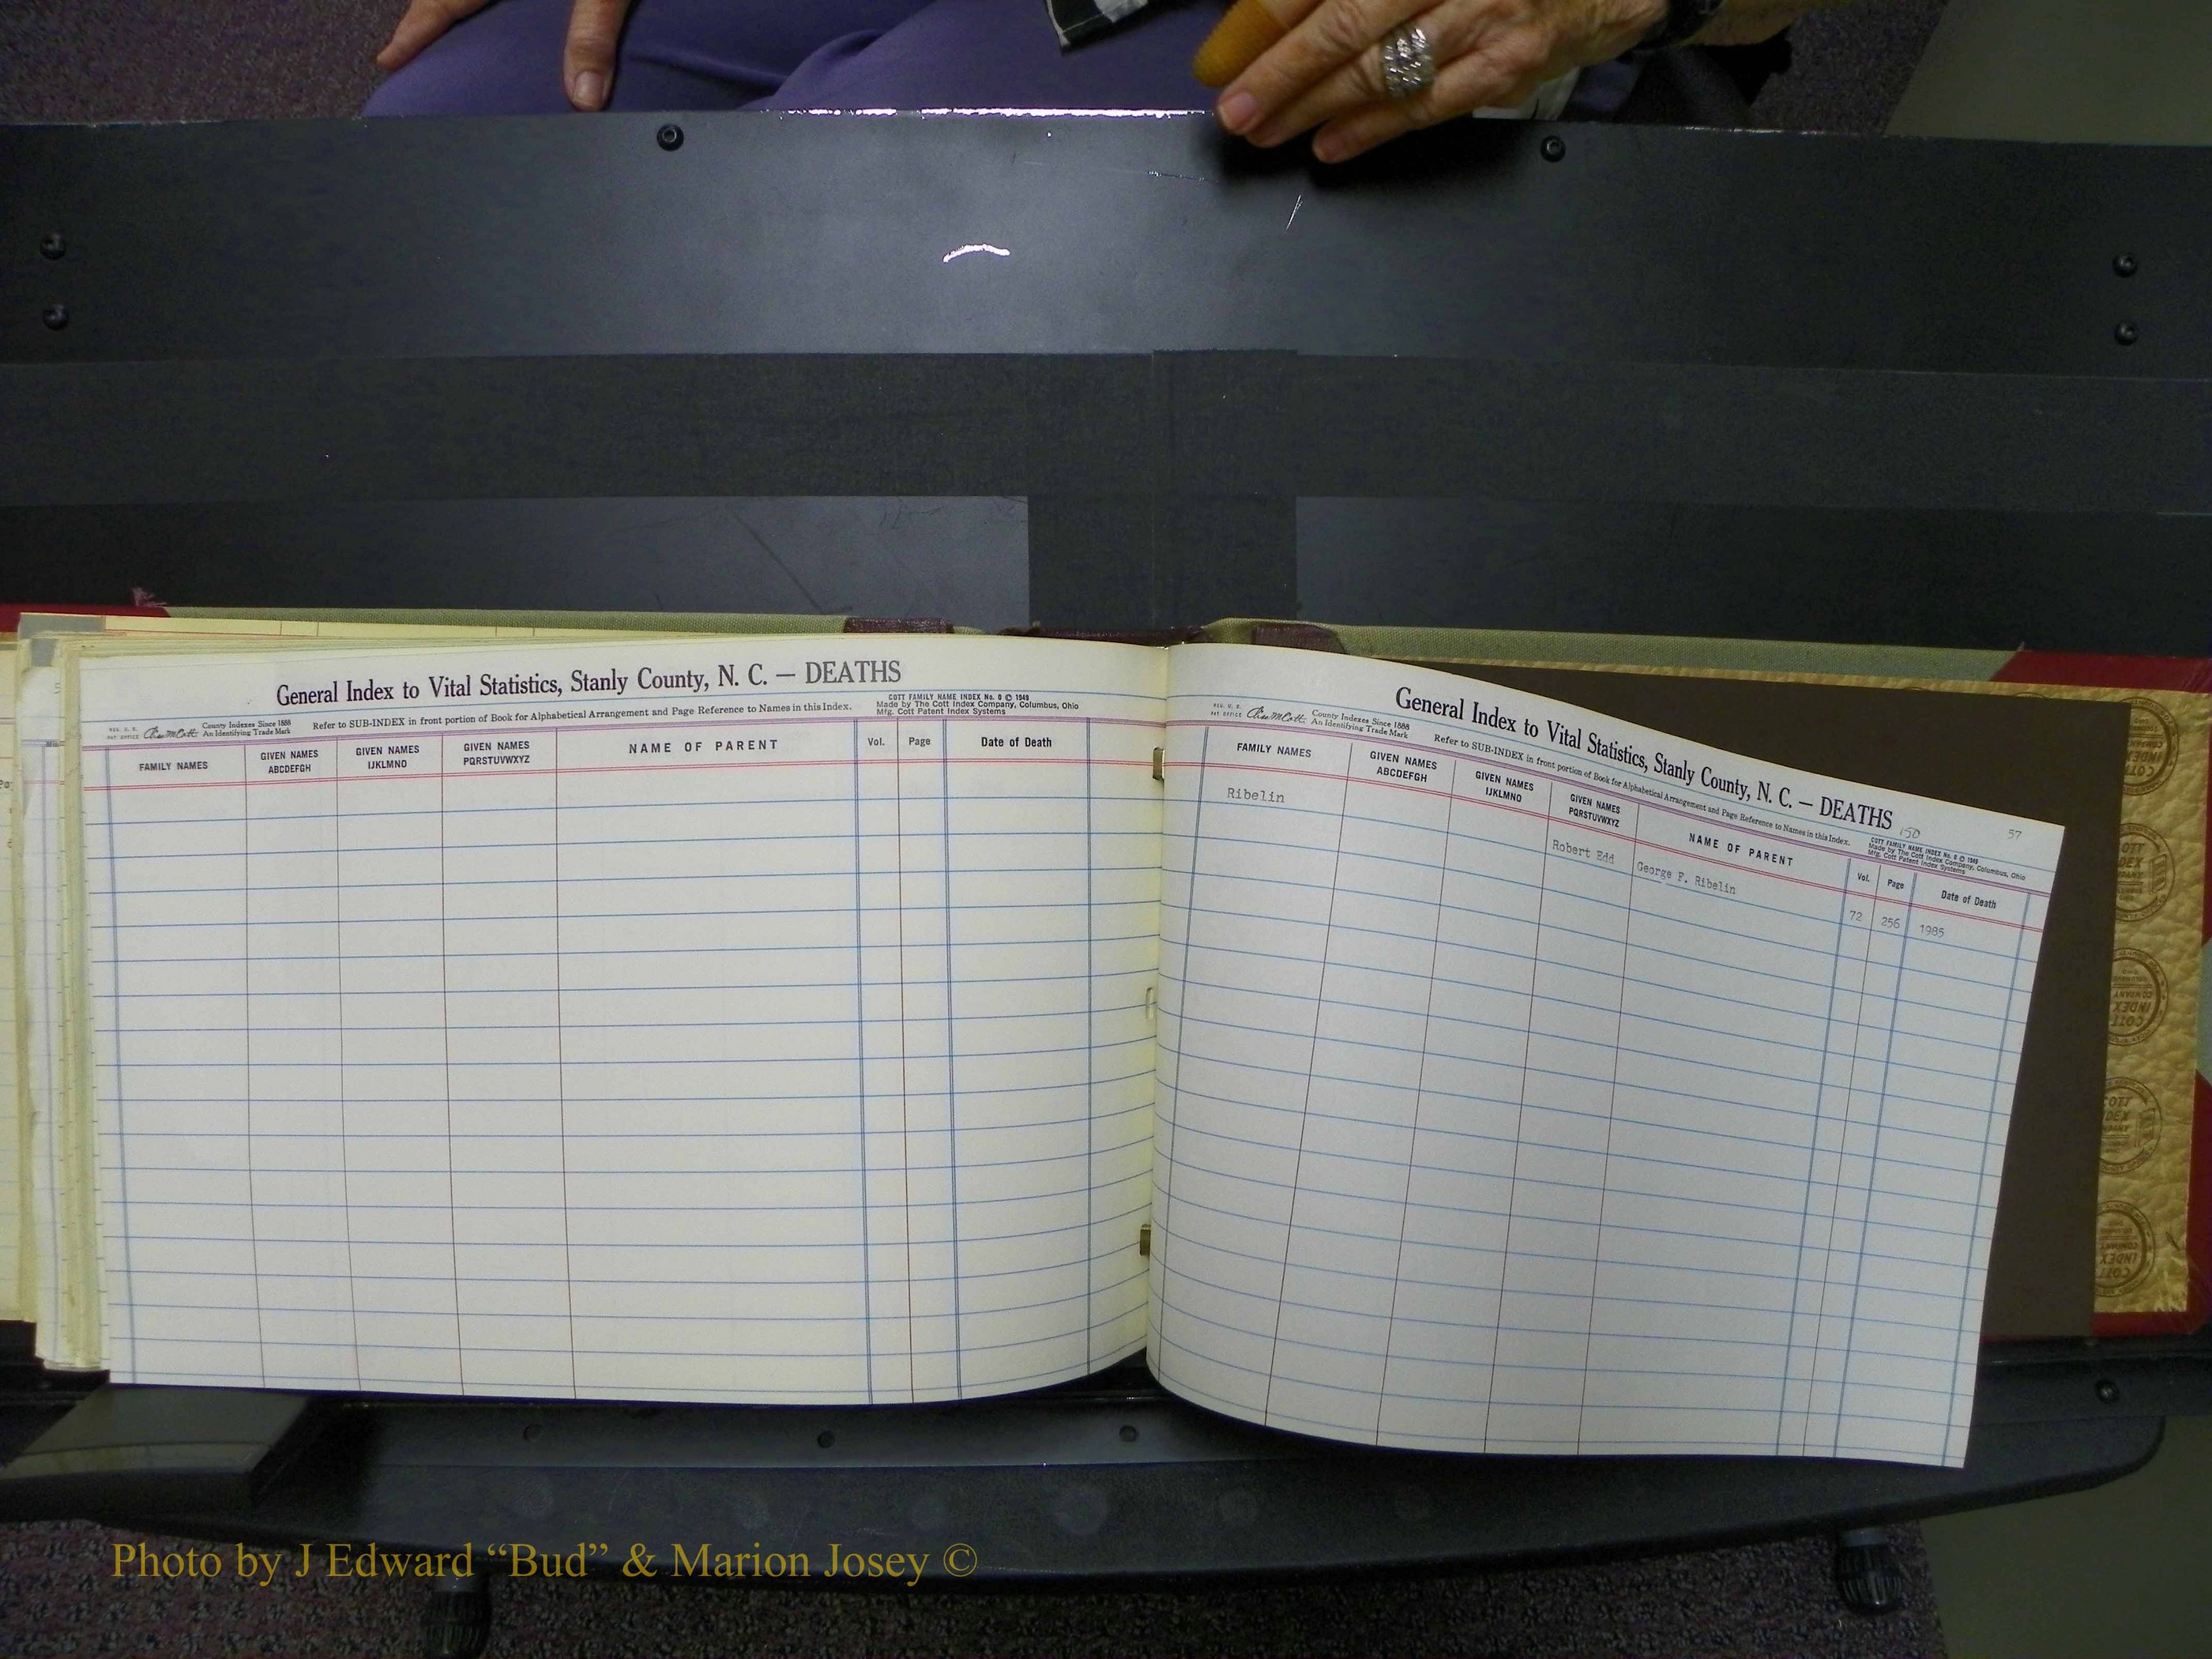 General Index to Vital Statistics, Stanly County, N. C. — DEATHS
REG. U. S.
PAT OFFICE
County Indexes Since 1888
An Identifying Trade Mark
Refer to SUB-INDEX in front portion of Book for Alphabetical Arrangement and Page Reference to Names in this Index.
COTT FAMILY NAME INDEX No. 8 © 1949
Made by The Cott Index Company, Columbus, Ohio
Mfg. Cott Patent Index Systems
FAMILY NAMES
GIVEN NAMES
ABCDEFGH
GIVEN NAMES
IJKLMNO
GIVEN NAMES
PQRSTUVWXYZ
NAME OF PARENT
Vol.
Page
Date of Death
General Index to Vital Statistics, Stanly County, N. C. — DEATHS
150
57
REG. U. S.
PAT OFFICE
County Indexes Since 1888
An Identifying Trade Mark
Refer to SUB-INDEX in front portion of Book for Alphabetical Arrangement and Page Reference to Names in this Index.
COTT FAMILY NAME INDEX No. 8 © 1949
Made by The Cott Index Company, Columbus, Ohio
Mfg. Cott Patent Index Systems
FAMILY NAMES
GIVEN NAMES
ABCDEFGH
GIVEN NAMES
IJKLMNO
GIVEN NAMES
PQRSTUVWXYZ
NAME OF PARENT
Vol.
Page
Date of Death
Ribelin Robert Edd George F. Ribelin 72 256 1985
Photo by J Edward “Bud” & Marion Josey ©